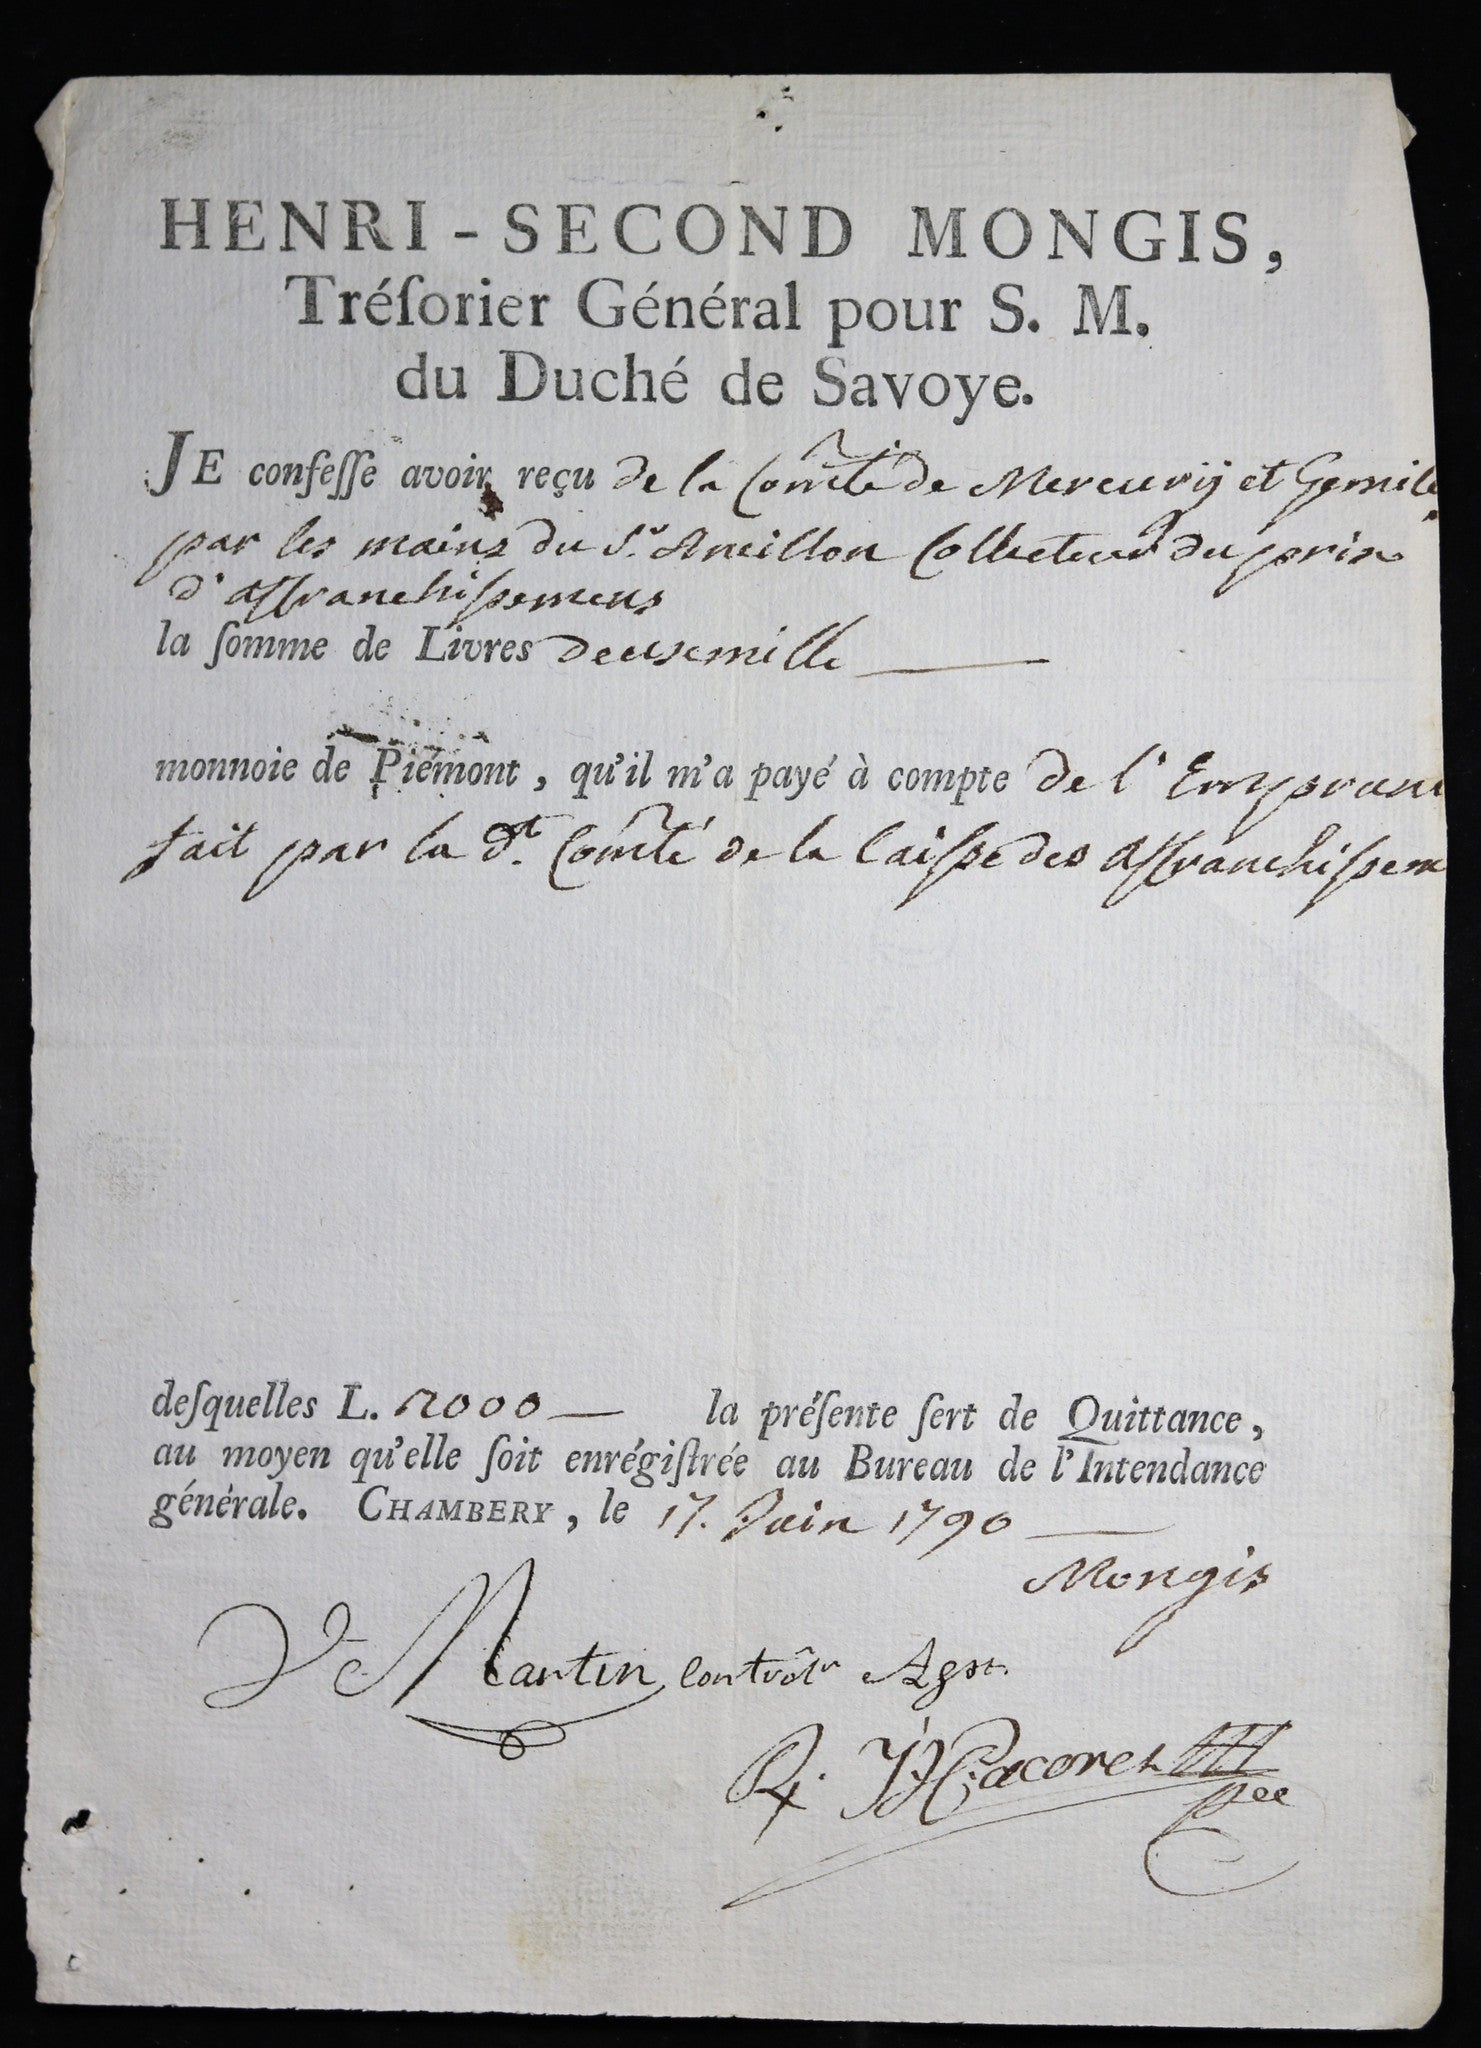 HENRI - SECOND MONGIS,
Tréſorier Général pour S. M.
du Duché de Savoye.
JE confeſſe avoir reçu de la Com̃té de Mercury et Gemile
par les mains du Sr. Ancillon Collecteur du prix
d'affranchissemens
la ſomme de Livres deuxmille
monnoie de Piémont, qu'il m'a payé à compte de l'Emprun
fait par la dt. Com̃té de la Caisse des affranchissem
deſquelles L. 2000 — la préſente ſert de Quittance,
au moyen qu'elle ſoit enrégiſtrée au Bureau de l'Intendance
générale. CHAMBERY, le 17. Juin 1790
Mongis
Martin Contrôlr